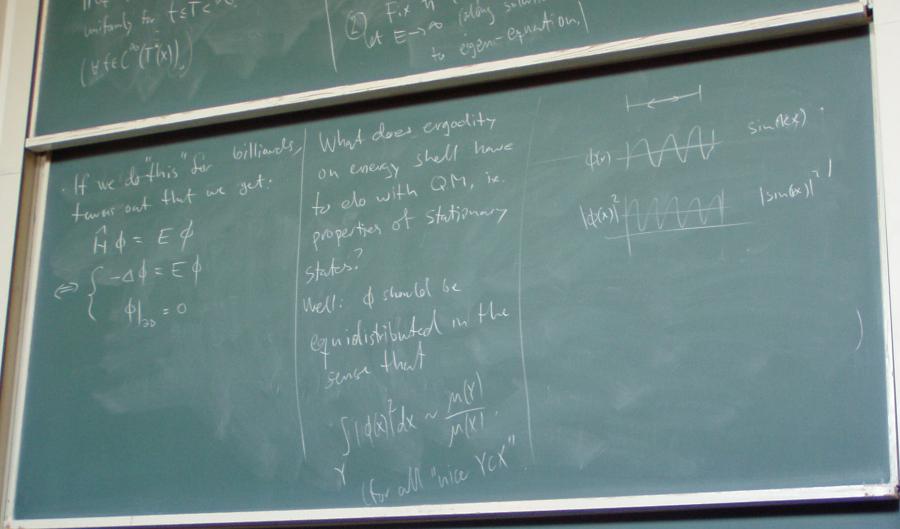 uniformly for t≤T<∞
(∀f∈C^∞(T*(X)))
② Fix
let E→∞ (along
to eigen-equation)
. If we do "this" for billiards,
turns out that we get:
Ĥφ = Eφ
⇔ { -Δφ = Eφ
φ|_∂D = 0
What does ergodity
on energy shell have
to do with QM, i.e.
properties of stationary
states?
Well: φ should be
equidistributed in the
sense that
∫_Y |φ(x)|²dx ~ μ(Y)/μ(X).
(for all "nice Y⊂X"
φ(x) sin(kx)
|φ(x)|² |sin(kx)|²